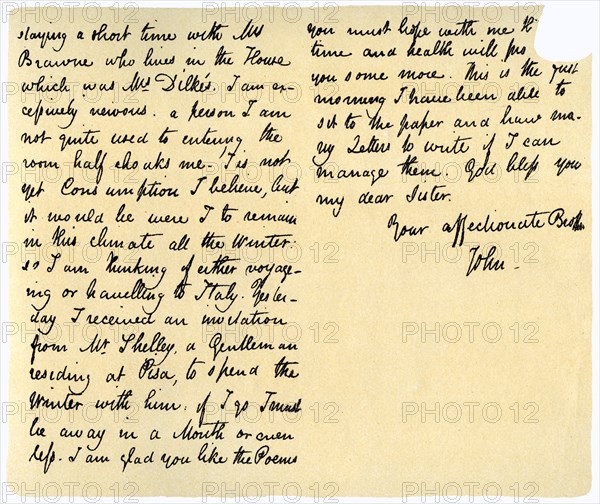 staying a short time with Mrs
Brawne who lives in the House
which was Mrs Dilke's. I am ex-
cessively nervous. a person I am
not quite used to entering the
room half choaks me. It is not
yet Consumption I believe, but
it would be were I to remain
in this climate all the Winter:
so I am thinking of either voyage-
ing or travelling to Italy. Yester-
day I received an invitation
from Mr Shelley, a Gentleman
residing at Pisa, to spend the
Winter with him: if I go I must
be away in a Month or even
less. I am glad you like the Poems
you must hope with me
time and health will pro
you some more. This is the first
morning I have been able to
sit to the paper and have ma-
ny Letters to write if I can
manage them. God bless you
my dear Sister.
Your affectionate Brother
John-
PHOTO12